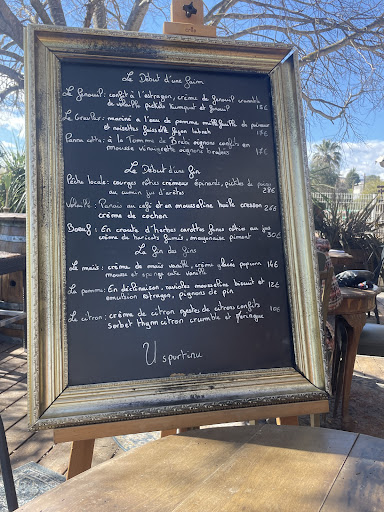 Le Début d'une faim
Le Fenouil : confit à l'estragon, crème de fenouil crumble
de volaille pickels kumquat et fenouil 15€
Le Gravlax : mariné a l'eau de pomme millefeuille de poireaux
et noisettes faisselle façon labneh 17€
Panna cotta : à la Tomme de Brebis oignons confits en
mousse vinaigrette oignons brulées 17€
Le Début d'une fin
Pêche locale : courges rôties crémeux épinards, pickles de
au cumin jus d'arêtes 28€
Volaille : Panais au café et en mousseline huile cresson 26€
crème de cochon
Boeuf : En croute d'herbes carottes fanes rôties au jus
crème de haricots fumés, mayonnaise piment 30€
La fin des fins
Le maïs : crème de maïs vanillé, crème glacée popcorn 14€
mousse et sponge cake vanille
La pomme : En déclinaison, ravioles mousseline biscuit et 12€
émulsion estragon, pignons de pin
Le citron : crème de citron zestes de citrons confits
sorbet thym citron crumble et meringue 10€
U spuntinu